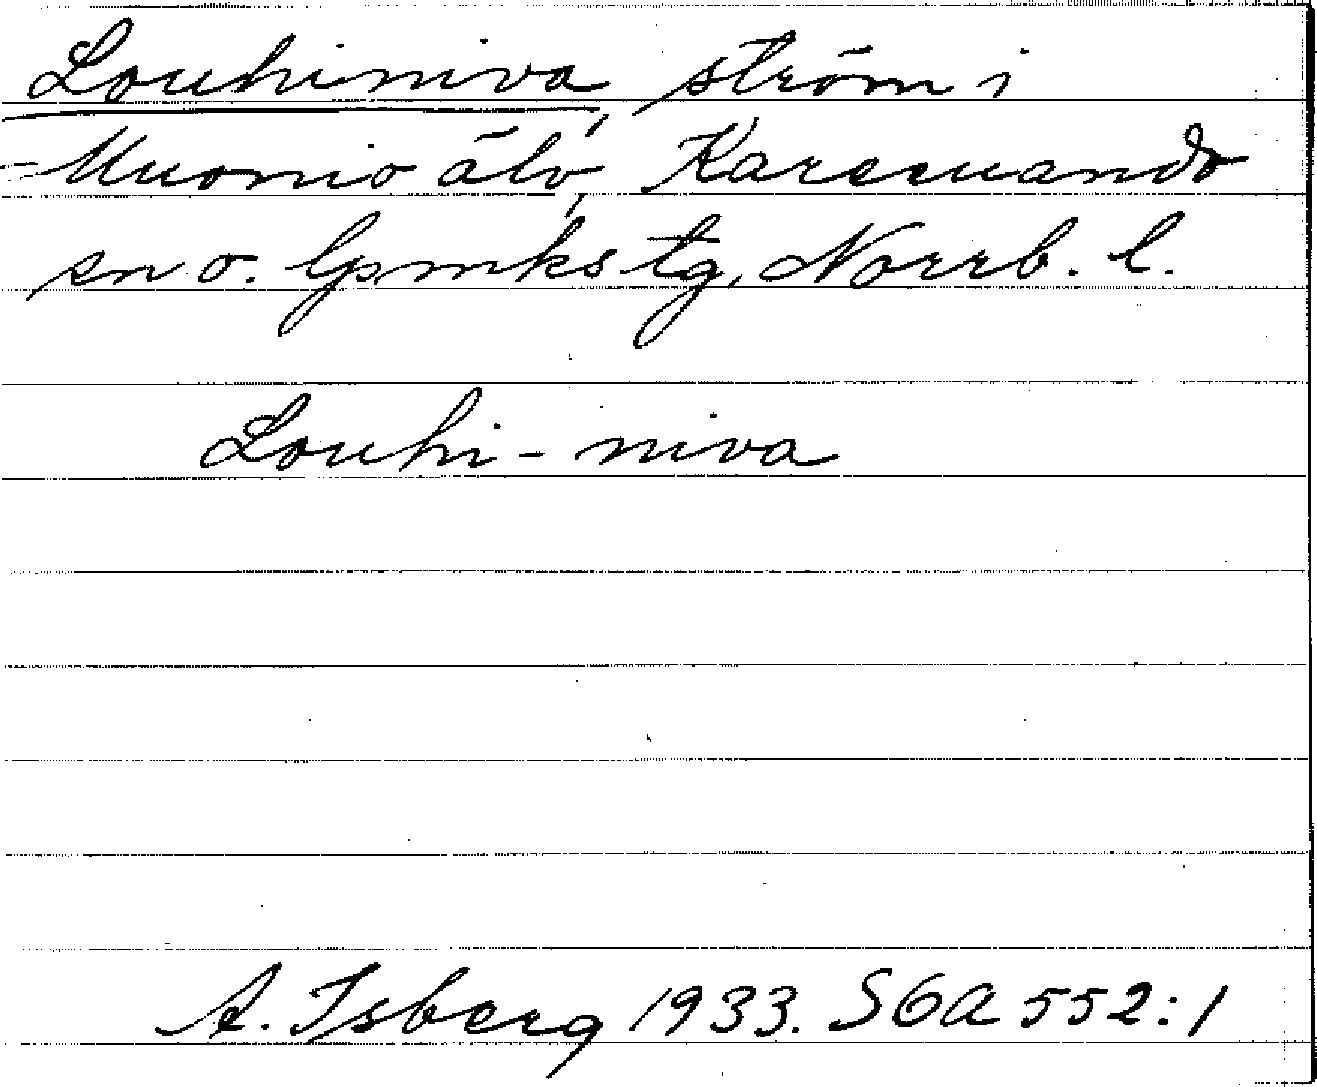 Louhiniva, ström i
Muonio älv, Karesuando
sn o. lpmkstg, Norrb. l.
Louhi-niva
A. Isberg 1933. SOA 552:1